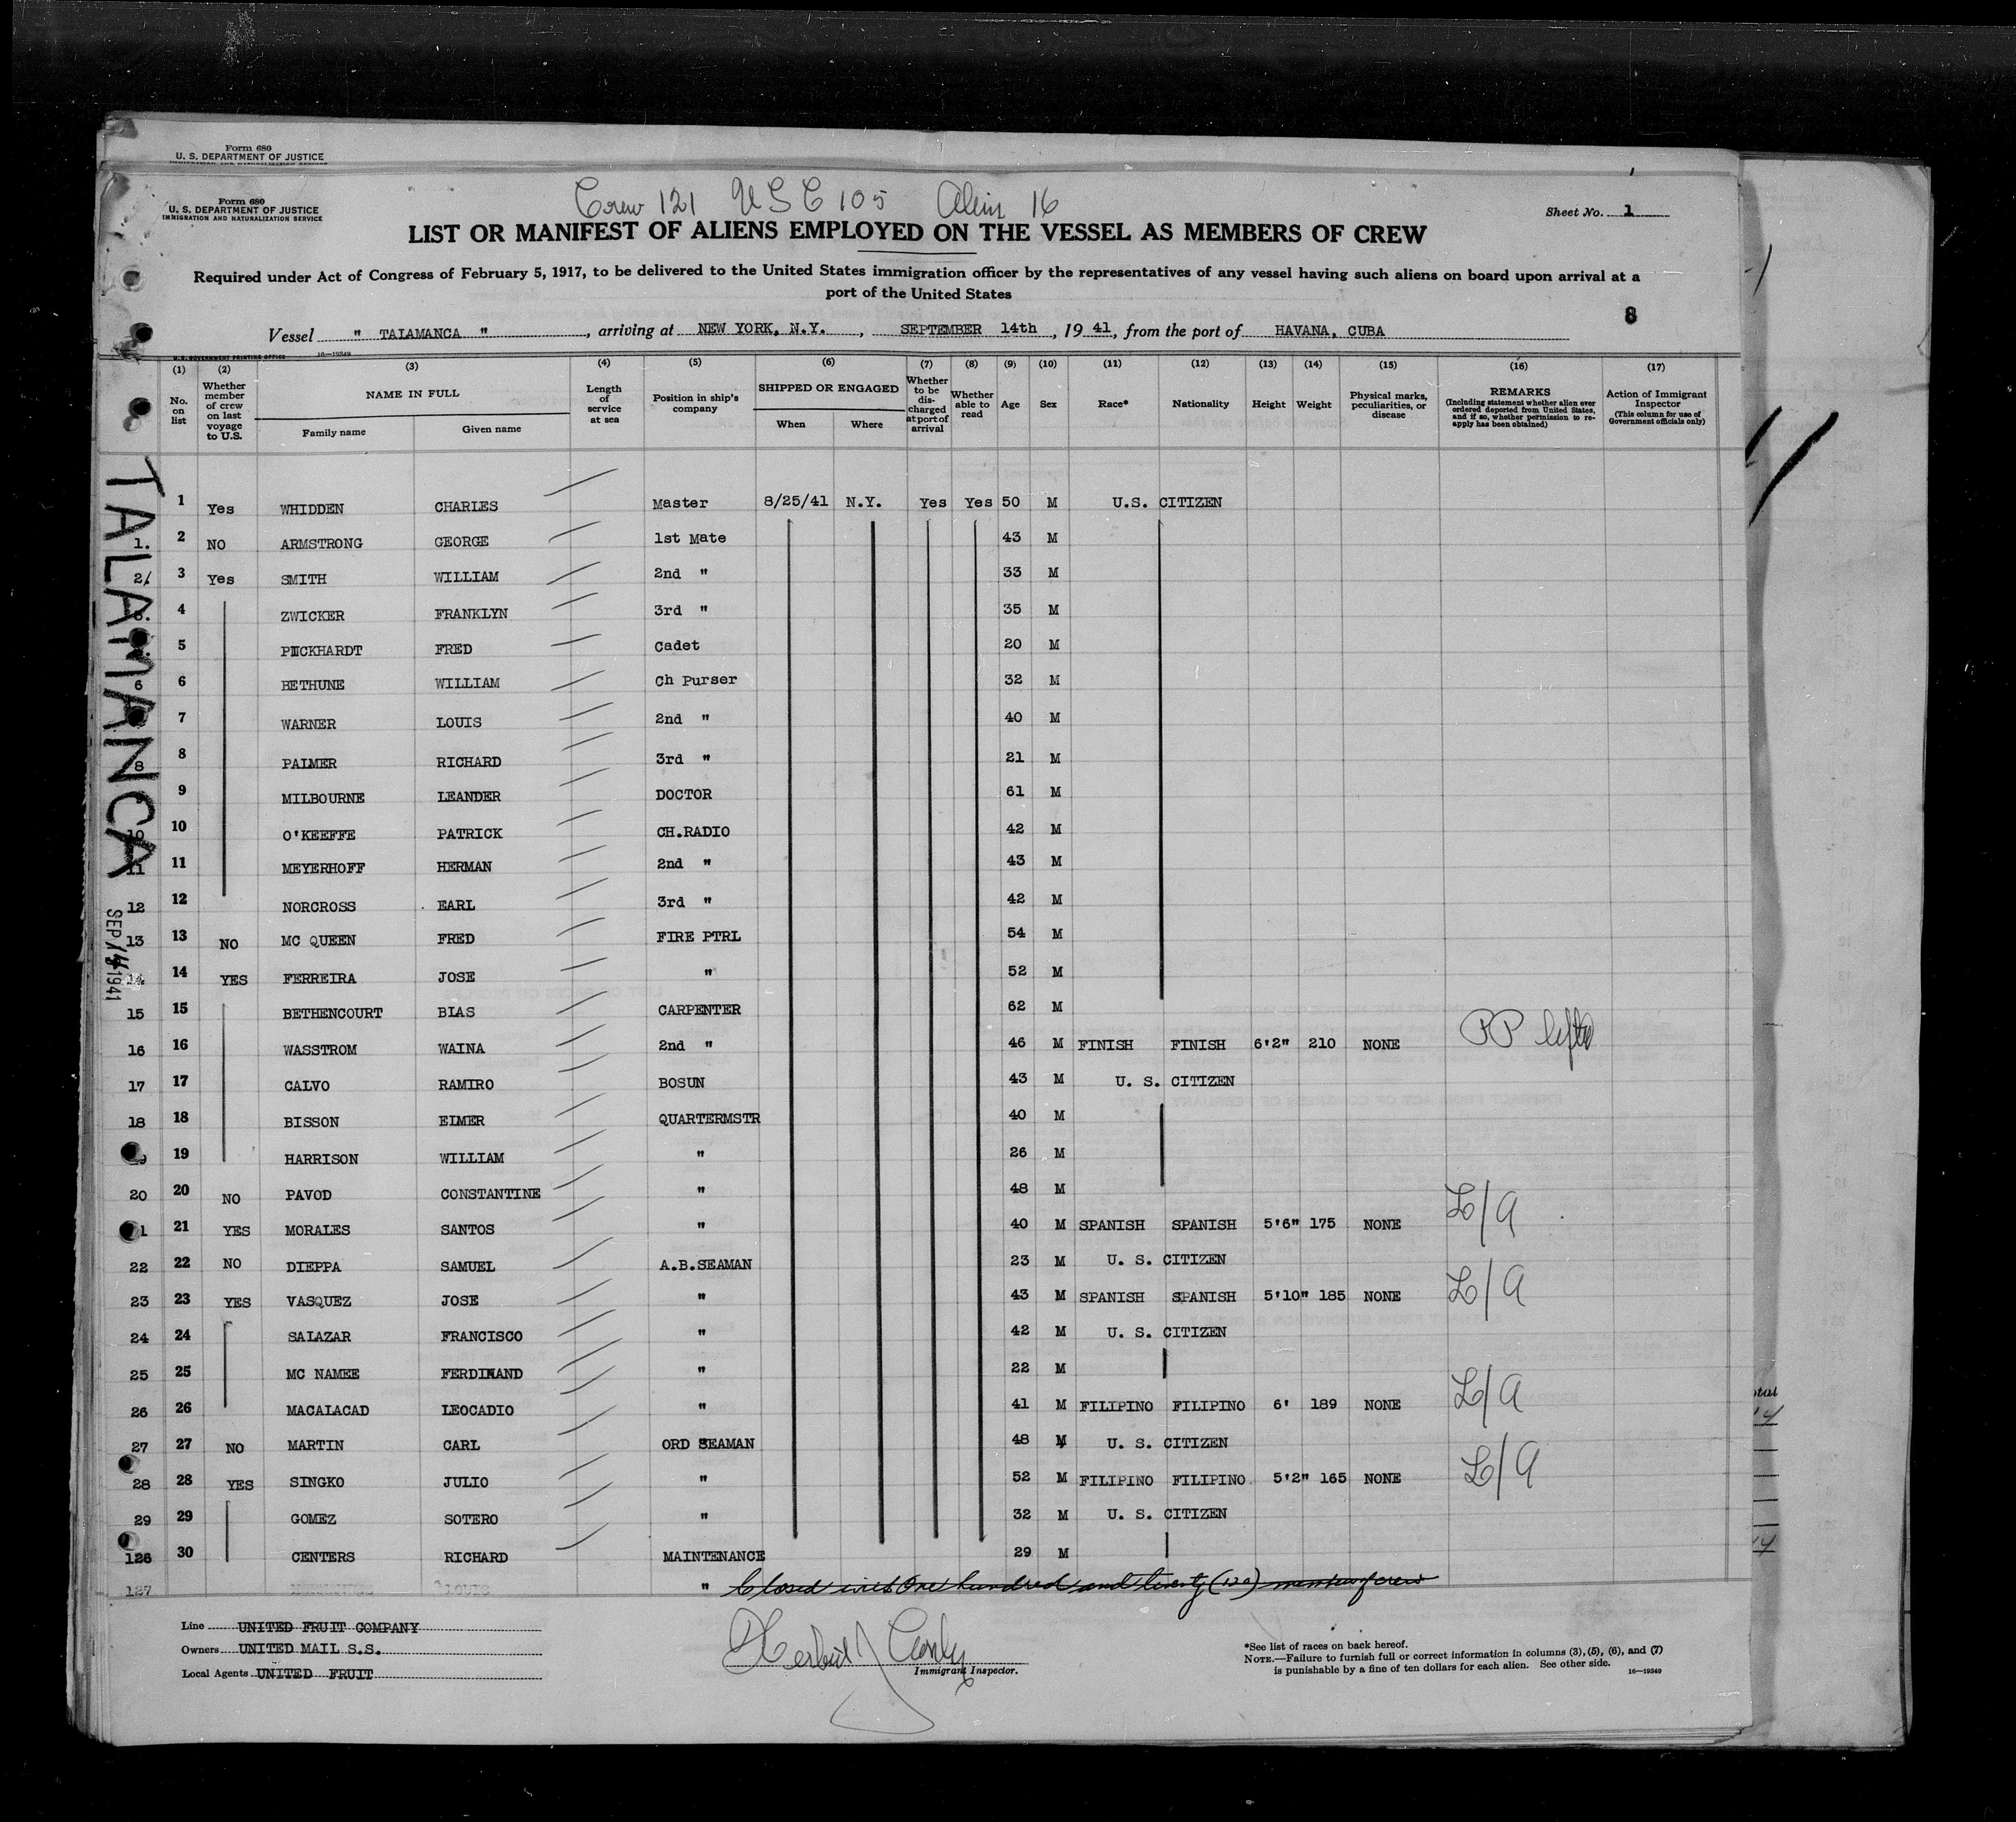 Form 680
U. S. DEPARTMENT OF JUSTICE
Form 680
U. S. DEPARTMENT OF JUSTICE
IMMIGRATION AND NATURALIZATION SERVICE
Crew 121 USC 105 Alien 16
Sheet No. 1
LIST OR MANIFEST OF ALIENS EMPLOYED ON THE VESSEL AS MEMBERS OF CREW
Required under Act of Congress of February 5, 1917, to be delivered to the United States immigration officer by the representatives of any vessel having such aliens on board upon arrival at a
port of the United States
8
Vessel " TALAMANCA ", arriving at NEW YORK, N.Y., SEPTEMBER 14th, 19 41, from the port of HAVANA, CUBA
U.S. GOVERNMENT PRINTING OFFICE 16—19349
(1) (2) (3) (4) (5) (6) (7) (8) (9) (10) (11) (12) (13) (14) (15) (16) (17)
No. on list
Whether member of crew on last voyage to U.S.
NAME IN FULL
Family name Given name
Length of service at sea
Position in ship's company
SHIPPED OR ENGAGED
When Where
Whether to be discharged at port of arrival
Whether able to read
Age Sex Race* Nationality Height Weight
Physical marks, peculiarities, or disease
REMARKS
(Including statement whether alien ever ordered deported from United States, and if so, whether permission to reapply has been obtained)
Action of Immigrant Inspector
(This column for use of Government officials only)
TALAMANCA
SEP 14 1941
1 Yes WHIDDEN CHARLES Master 8/25/41 N.Y. Yes Yes 50 M U.S. CITIZEN
1. 2 NO ARMSTRONG GEORGE 1st Mate 43 M
2 3 Yes SMITH WILLIAM 2nd " 33 M
4 ZWICKER FRANKLYN 3rd " 35 M
5 FRED Cadet 20 M
6 6 BETHUNE WILLIAM Ch Purser 32 M
7 WARNER LOUIS 2nd " 40 M
8 8 PALMER RICHARD 3rd " 21 M
9 MILBOURNE LEANDER DOCTOR 61 M
10 10 O'KEEFFE PATRICK CH.RADIO 42 M
11 11 MEYERHOFF HERMAN 2nd " 43 M
12 12 NORCROSS EARL 3rd " 42 M
13 13 NO MC QUEEN FRED FIRE PTRL 54 M
14 14 YES FERREIRA JOSE " 52 M
15 15 BETHENCOURT BIAS CARPENTER 62 M
16 16 WASSTROM WAINA 2nd " 46 M FINISH FINISH 6'2" 210 NONE PP
17 17 CALVO RAMIRO BOSUN 43 M U. S. CITIZEN
18 18 BISSON ELMER QUARTERMSTR 40 M
19 HARRISON WILLIAM " 26 M
20 20 NO PAVOD CONSTANTINE " 48 M
21 YES MORALES SANTOS " 40 M SPANISH SPANISH 5'6" 175 NONE L/A
22 22 NO DIEPPA SAMUEL A.B.SEAMAN 23 M U. S. CITIZEN
23 23 YES VASQUEZ JOSE " 43 M SPANISH SPANISH 5'10" 185 NONE L/A
24 24 SALAZAR FRANCISCO " 42 M U. S. CITIZEN
25 25 MC NAMEE FERDINAND " 22 M
26 26 MACALACAD LEOCADIO " 41 M FILIPINO FILIPINO 6' 189 NONE L/A
27 27 NO MARTIN CARL ORD SEAMAN 48 M U. S. CITIZEN
28 28 YES SINGKO JULIO " 52 M FILIPINO FILIPINO 5'2" 165 NONE L/A
29 29 GOMEZ SOTERO " 32 M U. S. CITIZEN
126 30 CENTERS RICHARD MAINTENANCE 29 M
127 LOUIS " Closed with One hundred and twenty (120) members of crew
Line UNITED FRUIT COMPANY
Owners UNITED MAIL S.S.
Local Agents UNITED FRUIT
Immigrant Inspector.
*See list of races on back hereof.
NOTE.—Failure to furnish full or correct information in columns (3), (5), (6), and (7)
is punishable by a fine of ten dollars for each alien. See other side.
16—19349